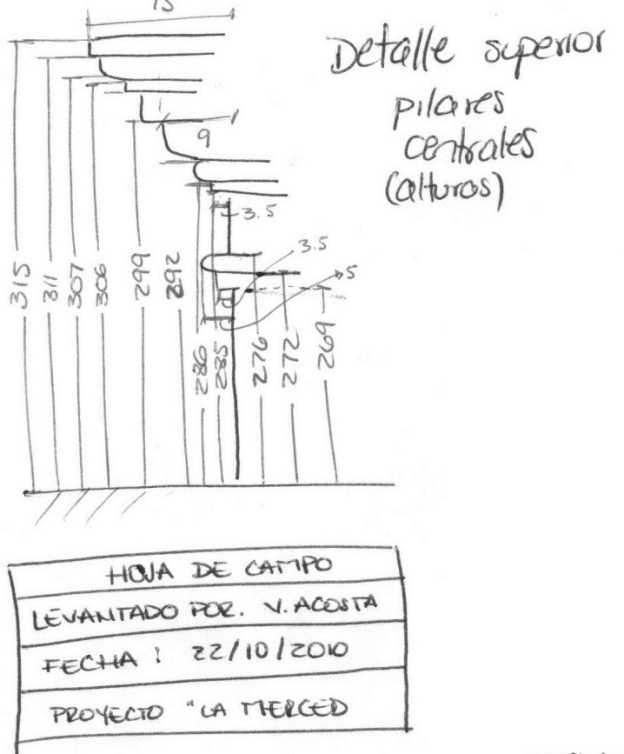 15
Detalle superior
pilares
centrales
(alturas)
9
3.5
3.5
5
315
311
307
306
299
292
286
285
276
272
269
HOJA DE CAMPO
LEVANTADO POR. V. ACOSTA
FECHA : 22/10/2010
PROYECTO "LA MERCED